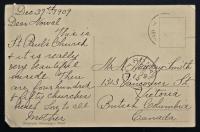 Dec 27th 1909
Dear Howal
This is
St Pauls Church
& it is really
very beautiful
inside. There
are four hundred
& fifty churches
here. Love to all
Mother
Mr A. Meadow Smith
1213 Vancouver St
Victoria
British Columbia
Canada